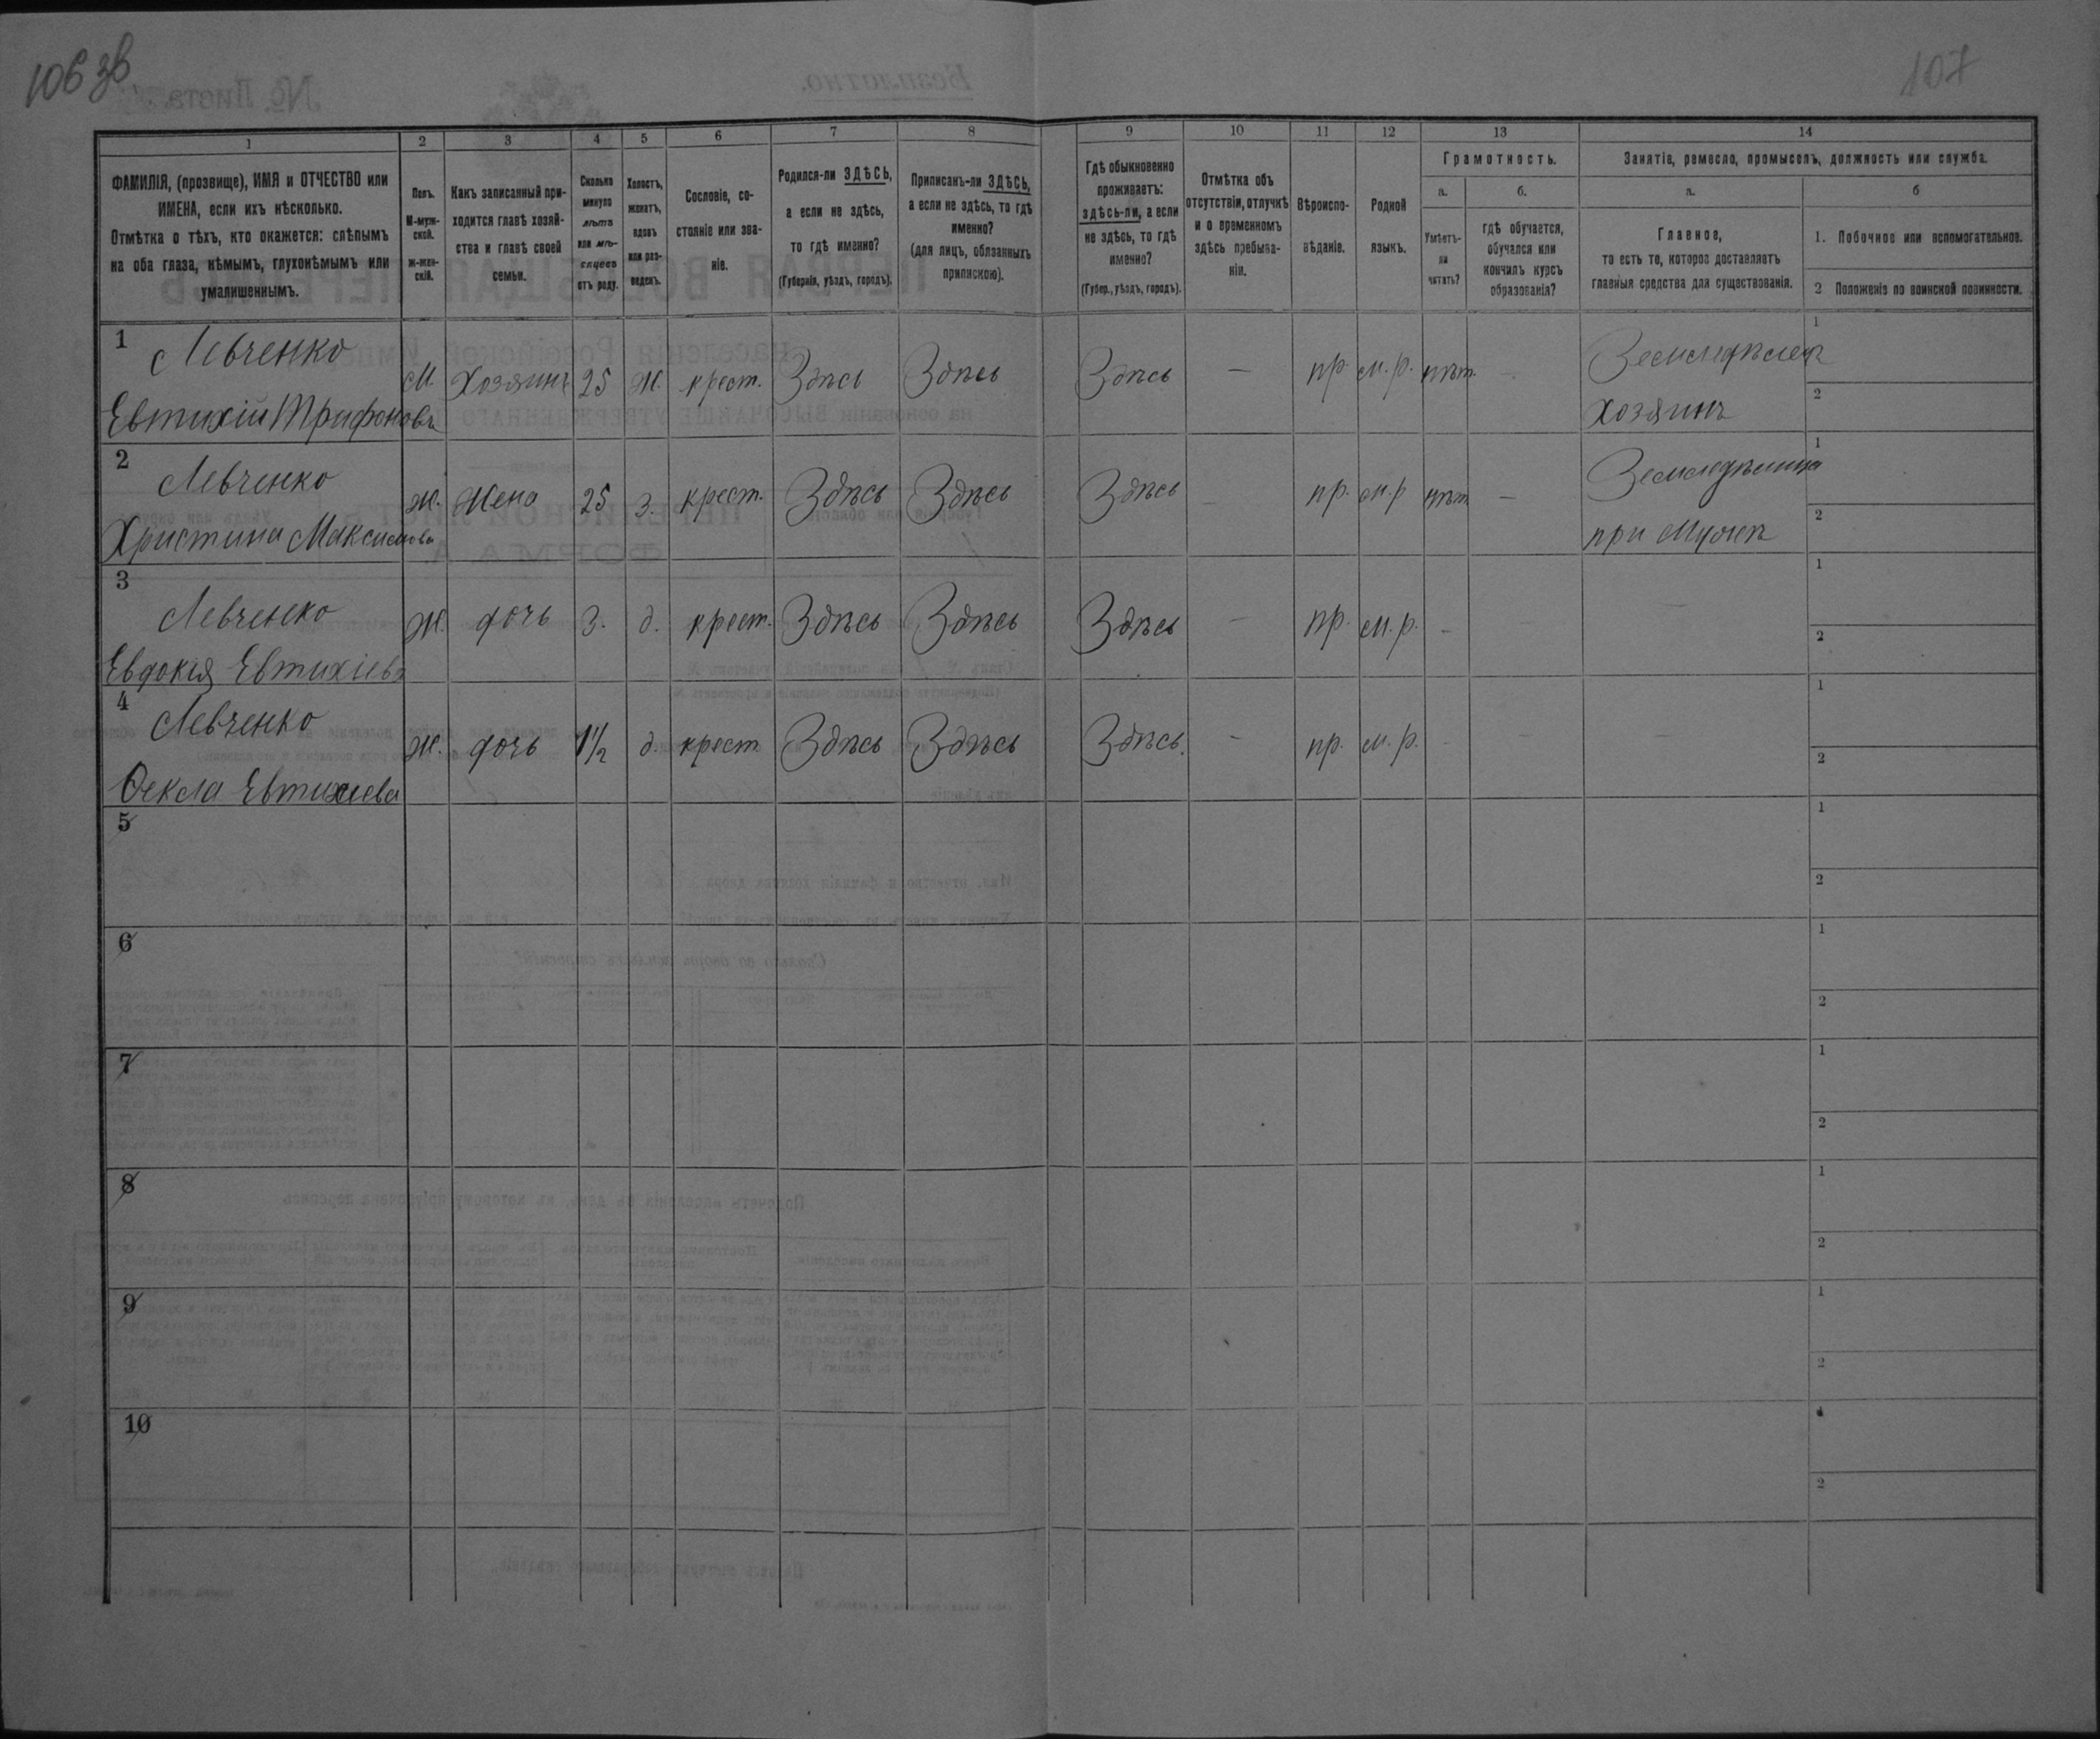 106 зв
107
1
2
3
4
5
6
7
8
9
10
11
12
13
14
ФАМИЛІЯ, (прозвище), ИМЯ и ОТЧЕСТВО или
ИМЕНА, если ихъ нѣсколько.
Отмѣтка о тѣхъ, кто окажется: слѣпымъ
на оба глаза, нѣмымъ, глухонѣмымъ или
умалишеннымъ.
Полъ.
М-муж-
ской.
Ж-жен-
скій.
Какъ записанный при-
ходится главѣ хозяй-
ства и главѣ своей
семьи.
Сколько
минуло
лѣтъ
или мѣ-
сяцевъ
отъ роду.
Холостъ,
женатъ,
вдовъ
или раз-
веденъ.
Сословіе, со-
стояніе или зва-
ніе.
Родился-ли ЗДѢСЬ,
а если не здѣсь,
то гдѣ именно?
(Губернія, уѣздъ, городъ).
Приписанъ-ли ЗДѢСЬ,
а если не здѣсь, то гдѣ
именно?
(для лицъ, обязанныхъ
припискою).
Гдѣ обыкновенно
проживаетъ:
здѣсь-ли, а если
не здѣсь, то гдѣ
именно?
(Губер., уѣздъ, городъ).
Отмѣтка объ
отсутствіи, отлучкѣ
и о временномъ
здѣсь пребыва-
ніи.
Вѣроиспо-
вѣданіе.
Родной
языкъ.
Грамотность.
а.
б.
Умѣетъ-
ли
читать?
гдѣ обучается,
обучался или
кончилъ курсъ
образованія?
Занятіе, ремесло, промыселъ, должность или служба.
а.
б
Главное,
то есть то, которое доставляетъ
главныя средства для существованія.
1. Побочное или вспомогательное.
2 Положеніе по воинской повинности.
1
Левченко
Евтихій Трифоновъ
М. Хозяинъ 25 Ж. крест. Здѣсь Здѣсь Здѣсь — пр. м.р. нѣт. —
Земледѣлецъ
хозяинъ
1
2
2
Левченко
Христина Максимова
Ж. Жена 25 З. крест. Здѣсь Здѣсь Здѣсь — пр. м.р нѣт —
Земледѣлица
при Мужѣ
1
2
3
Левченко
Евдокія Евтихіева
Ж. дочь 3. д. крест. Здѣсь Здѣсь Здѣсь — пр. м.р. — —
1
2
4
Левченко
Ѳекла Евтихиева
Ж. дочь 1½ д. крест Здѣсь Здѣсь Здѣсь. — пр. м.р. — — —
1
2
5
1
2
6
1
2
7
1
2
8
1
2
9
1
2
10
1
2